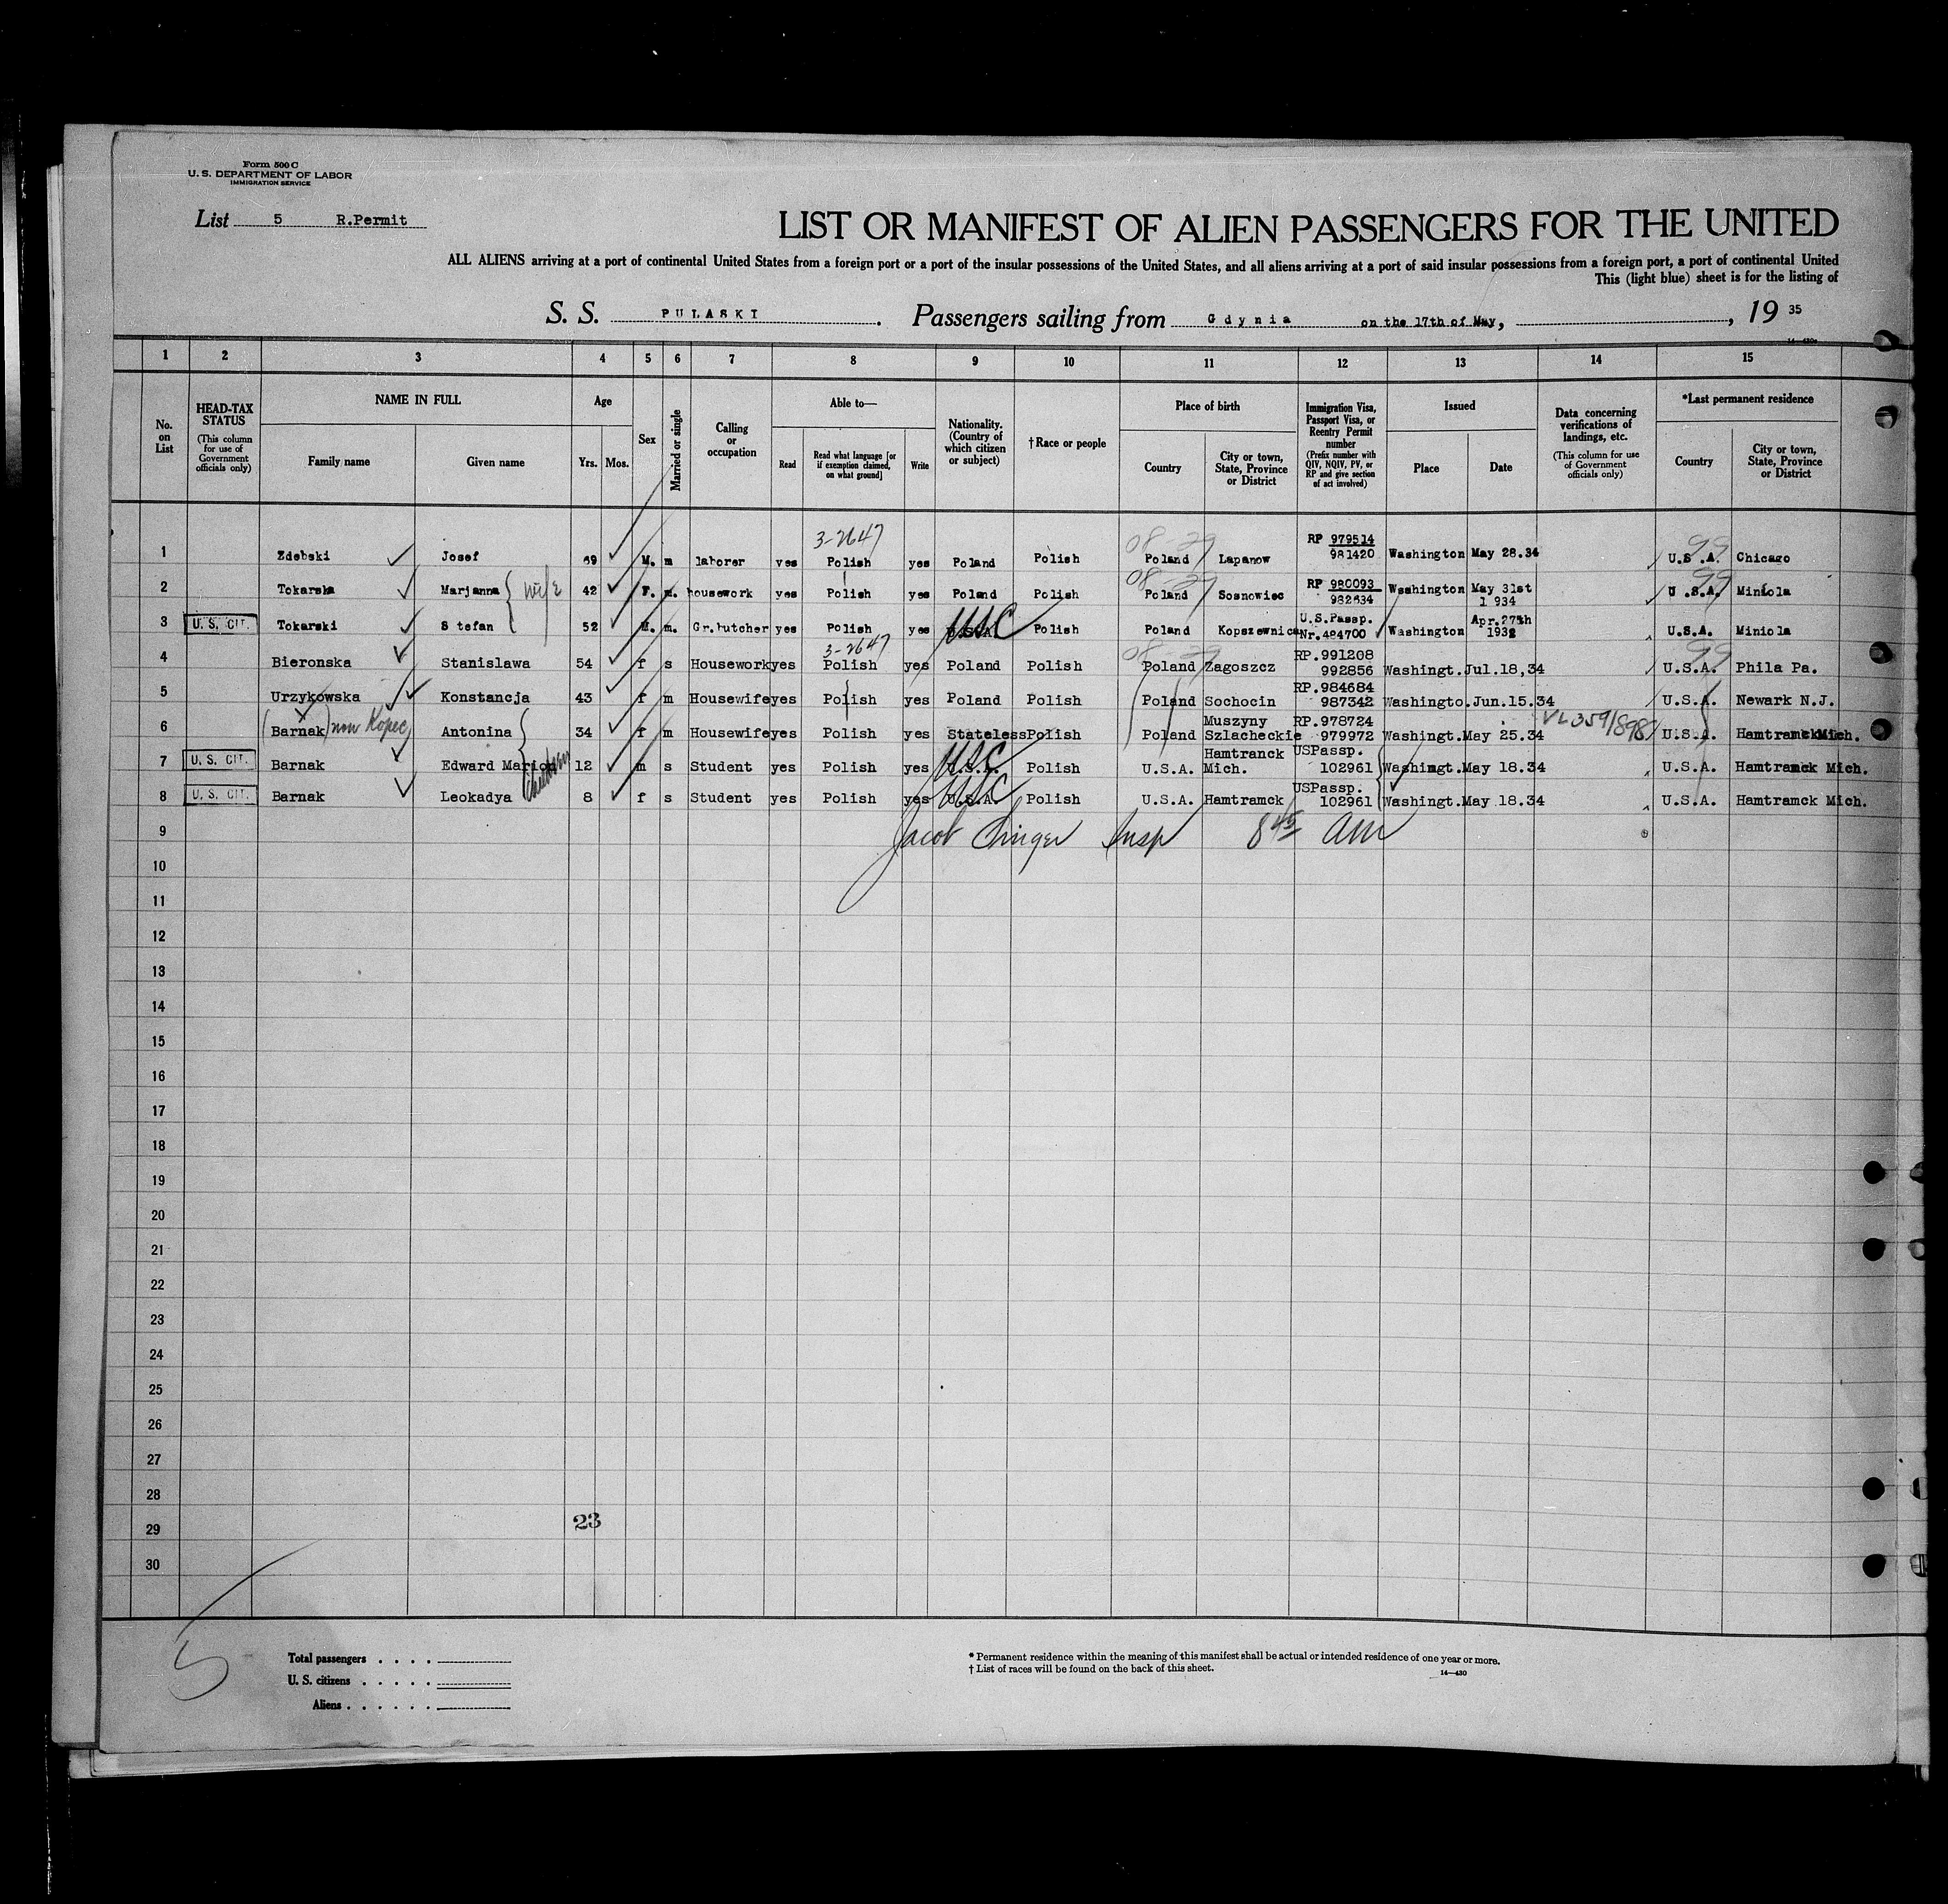 Form 500 C
U. S. DEPARTMENT OF LABOR
IMMIGRATION SERVICE
List 5 R.Permit
LIST OR MANIFEST OF ALIEN PASSENGERS FOR THE UNITED
ALL ALIENS arriving at a port of continental United States from a foreign port or a port of the insular possessions of the United States, and all aliens arriving at a port of said insular possessions from a foreign port, a port of continental United
This (light blue) sheet is for the listing of
S. S. PULASKI. Passengers sailing from Gdynia on the 17th of May, , 19 35
1 2 3 4 5 6 7 8 9 10 11 12 13 14 15
No. on List
HEAD-TAX STATUS (This column for use of Government officials only)
NAME IN FULL
Family name Given name
Age
Yrs. Mos.
Sex
Married or single
Calling or occupation
Able to—
Read
Read what language [or if exemption claimed, on what ground]
Write
Nationality. (Country of which citizen or subject)
† Race or people
Place of birth
Country
City or town, State, Province or District
Immigration Visa, Passport Visa, or Reentry Permit number (Prefix number with QIV, NQIV, PV, or RP and give section of act involved)
Issued
Place Date
Data concerning verifications of landings, etc. (This column for use of Government officials only)
*Last permanent residence
Country
City or town, State, Province or District
3-2647
1 Zdebski Josef 69 M. m laborer yes Polish yes Poland Polish Poland Lapanow RP 979514 981420 Washington May 28.34 U.S.A. Chicago
2 Tokarska Marjanna wife 42 F. m. housework yes Polish yes Poland Polish Poland Sosnowiec RP 980093 982634 Washington May 31st 1934 U.S.A. Miniola
3 U. S. CIT. Tokarski Stefan 52 M. m. Gr.butcher yes Polish yes U.S.A. USC Polish Poland Kopszewnica U.S.Passp. Nr.484700 Washington Apr.27th 1932 U.S.A. Miniola
3-2647
4 Bieronska Stanislawa 54 f s Housework yes Polish yes Poland Polish Poland Zagoszcz RP.991208 992856 Washingt. Jul.18,34 U.S.A. Phila Pa.
5 Urzykowska Konstancja 43 f m Housewife yes Polish yes Poland Polish Poland Sochocin RP.984684 987342 Washingto. Jun.15.34 U.S.A. Newark N.J.
6 (Barnak) now Kopec Antonina 34 f m Housewife yes Polish yes Stateless Polish Poland Muszyny Szlacheckie RP.978724 979972 Washingt. May 25.34 VL 359/898 U.S.A. Hamtramck Mich.
7 U. S. CIT. Barnak Edward Marion children 12 m s Student yes Polish yes U.S.A. USC Polish U.S.A. Hamtranck Mich. USPassp. 102961 Washingt. May 18.34 U.S.A. Hamtramck Mich.
8 U. S. CIT. Barnak Leokadya 8 f s Student yes Polish yes U.S.A. USC Polish U.S.A. Hamtramck USPassp. 102961 Washingt. May 18.34 U.S.A. Hamtramck Mich.
9 Jacob Insp 8 45 AM
10
11
12
13
14
15
16
17
18
19
20
21
22
23
24
25
26
27
28
23
29
30
5
Total passengers
U. S. citizens
Aliens
* Permanent residence within the meaning of this manifest shall be actual or intended residence of one year or more.
† List of races will be found on the back of this sheet.
14—430